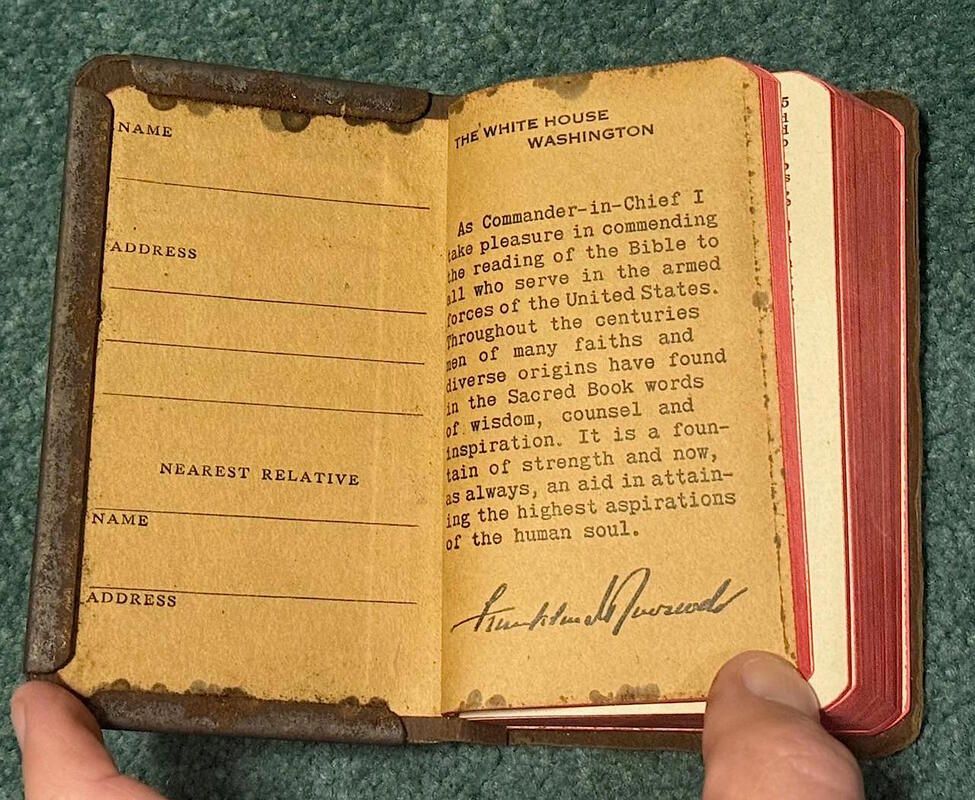 NAME
ADDRESS
NEAREST RELATIVE
NAME
ADDRESS
THE WHITE HOUSE
WASHINGTON
As Commander-in-Chief I
take pleasure in commending
the reading of the Bible to
all who serve in the armed
forces of the United States.
Throughout the centuries
men of many faiths and
diverse origins have found
in the Sacred Book words
of wisdom, counsel and
inspiration. It is a foun-
tain of strength and now,
as always, an aid in attain-
ing the highest aspirations
of the human soul.
Franklin D Roosevelt